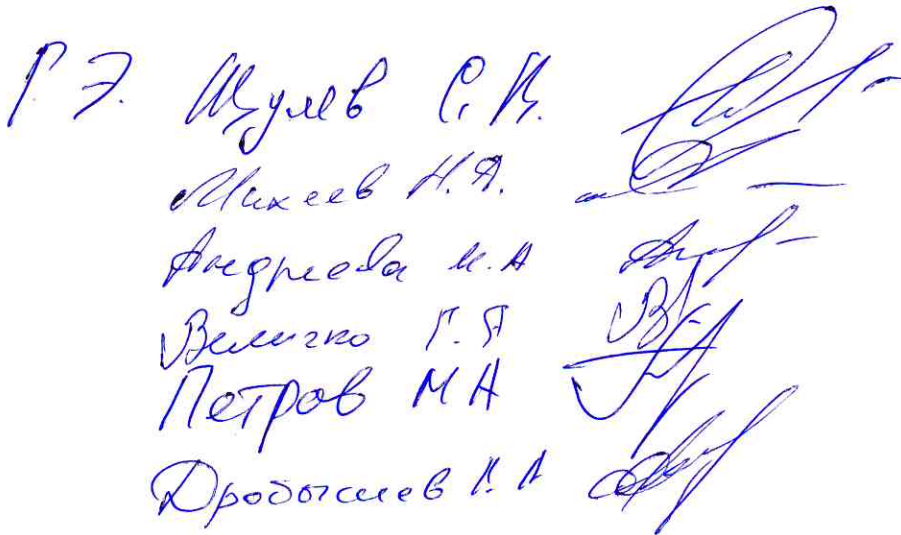 Г. Э. Щулев С. В.
Михеев Н.А.
Андреева М.А
Величко Г. Я
Петров М А
Дробышев А. А